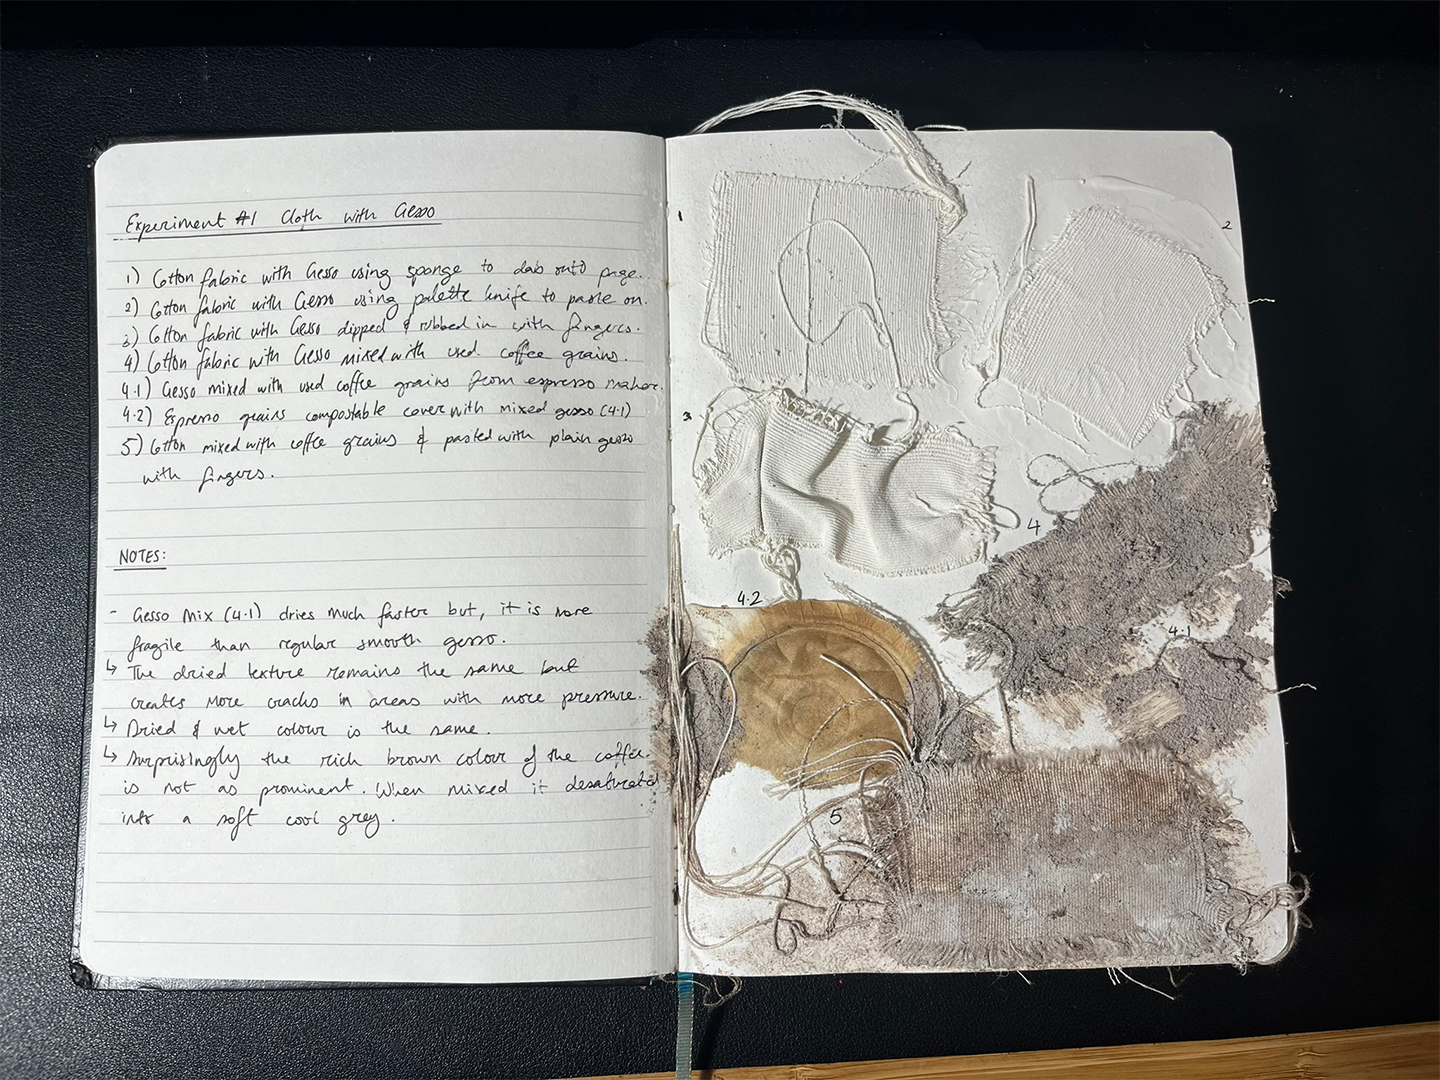 Experiment #1 Cloth with Gesso
1) Cotton fabric with Gesso using sponge to dab onto page.
2) Cotton fabric with Gesso using palette knife to paste on.
3) Cotton fabric with Gesso dipped & rubbed in with fingers.
4) Cotton fabric with Gesso mixed with used coffee grains.
4.1) Gesso mixed with used coffee grains from espresso maker.
4.2) Espresso grains compostable cover with mixed gesso (4.1)
5) Cotton mixed with coffee grains & pasted with plain gesso
with fingers.
NOTES:
- Gesso Mix (4.1) dries much faster but, it is more
fragile than regular smooth gesso.
↳ The dried texture remains the same but
creates more cracks in areas with more pressure.
↳ Dried & wet colour is the same.
↳ Surprisingly the rich brown colour of the coffee
is not as prominent. When mixed it desaturated
into a soft cool grey.
1
2
3
4
4.2
4.1
5